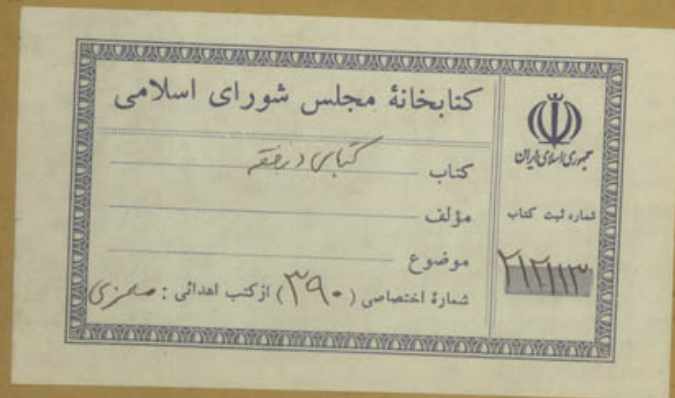 کتابخانهٔ مجلس شورای اسلامی
کتاب کتابی در فقه
مؤلف
موضوع
شمارهٔ اختصاصی (۳۹۰) از کتب اهدائی :
جمهوری اسلامی ایران
شماره ثبت کتاب
۲۱۲۱۱۳